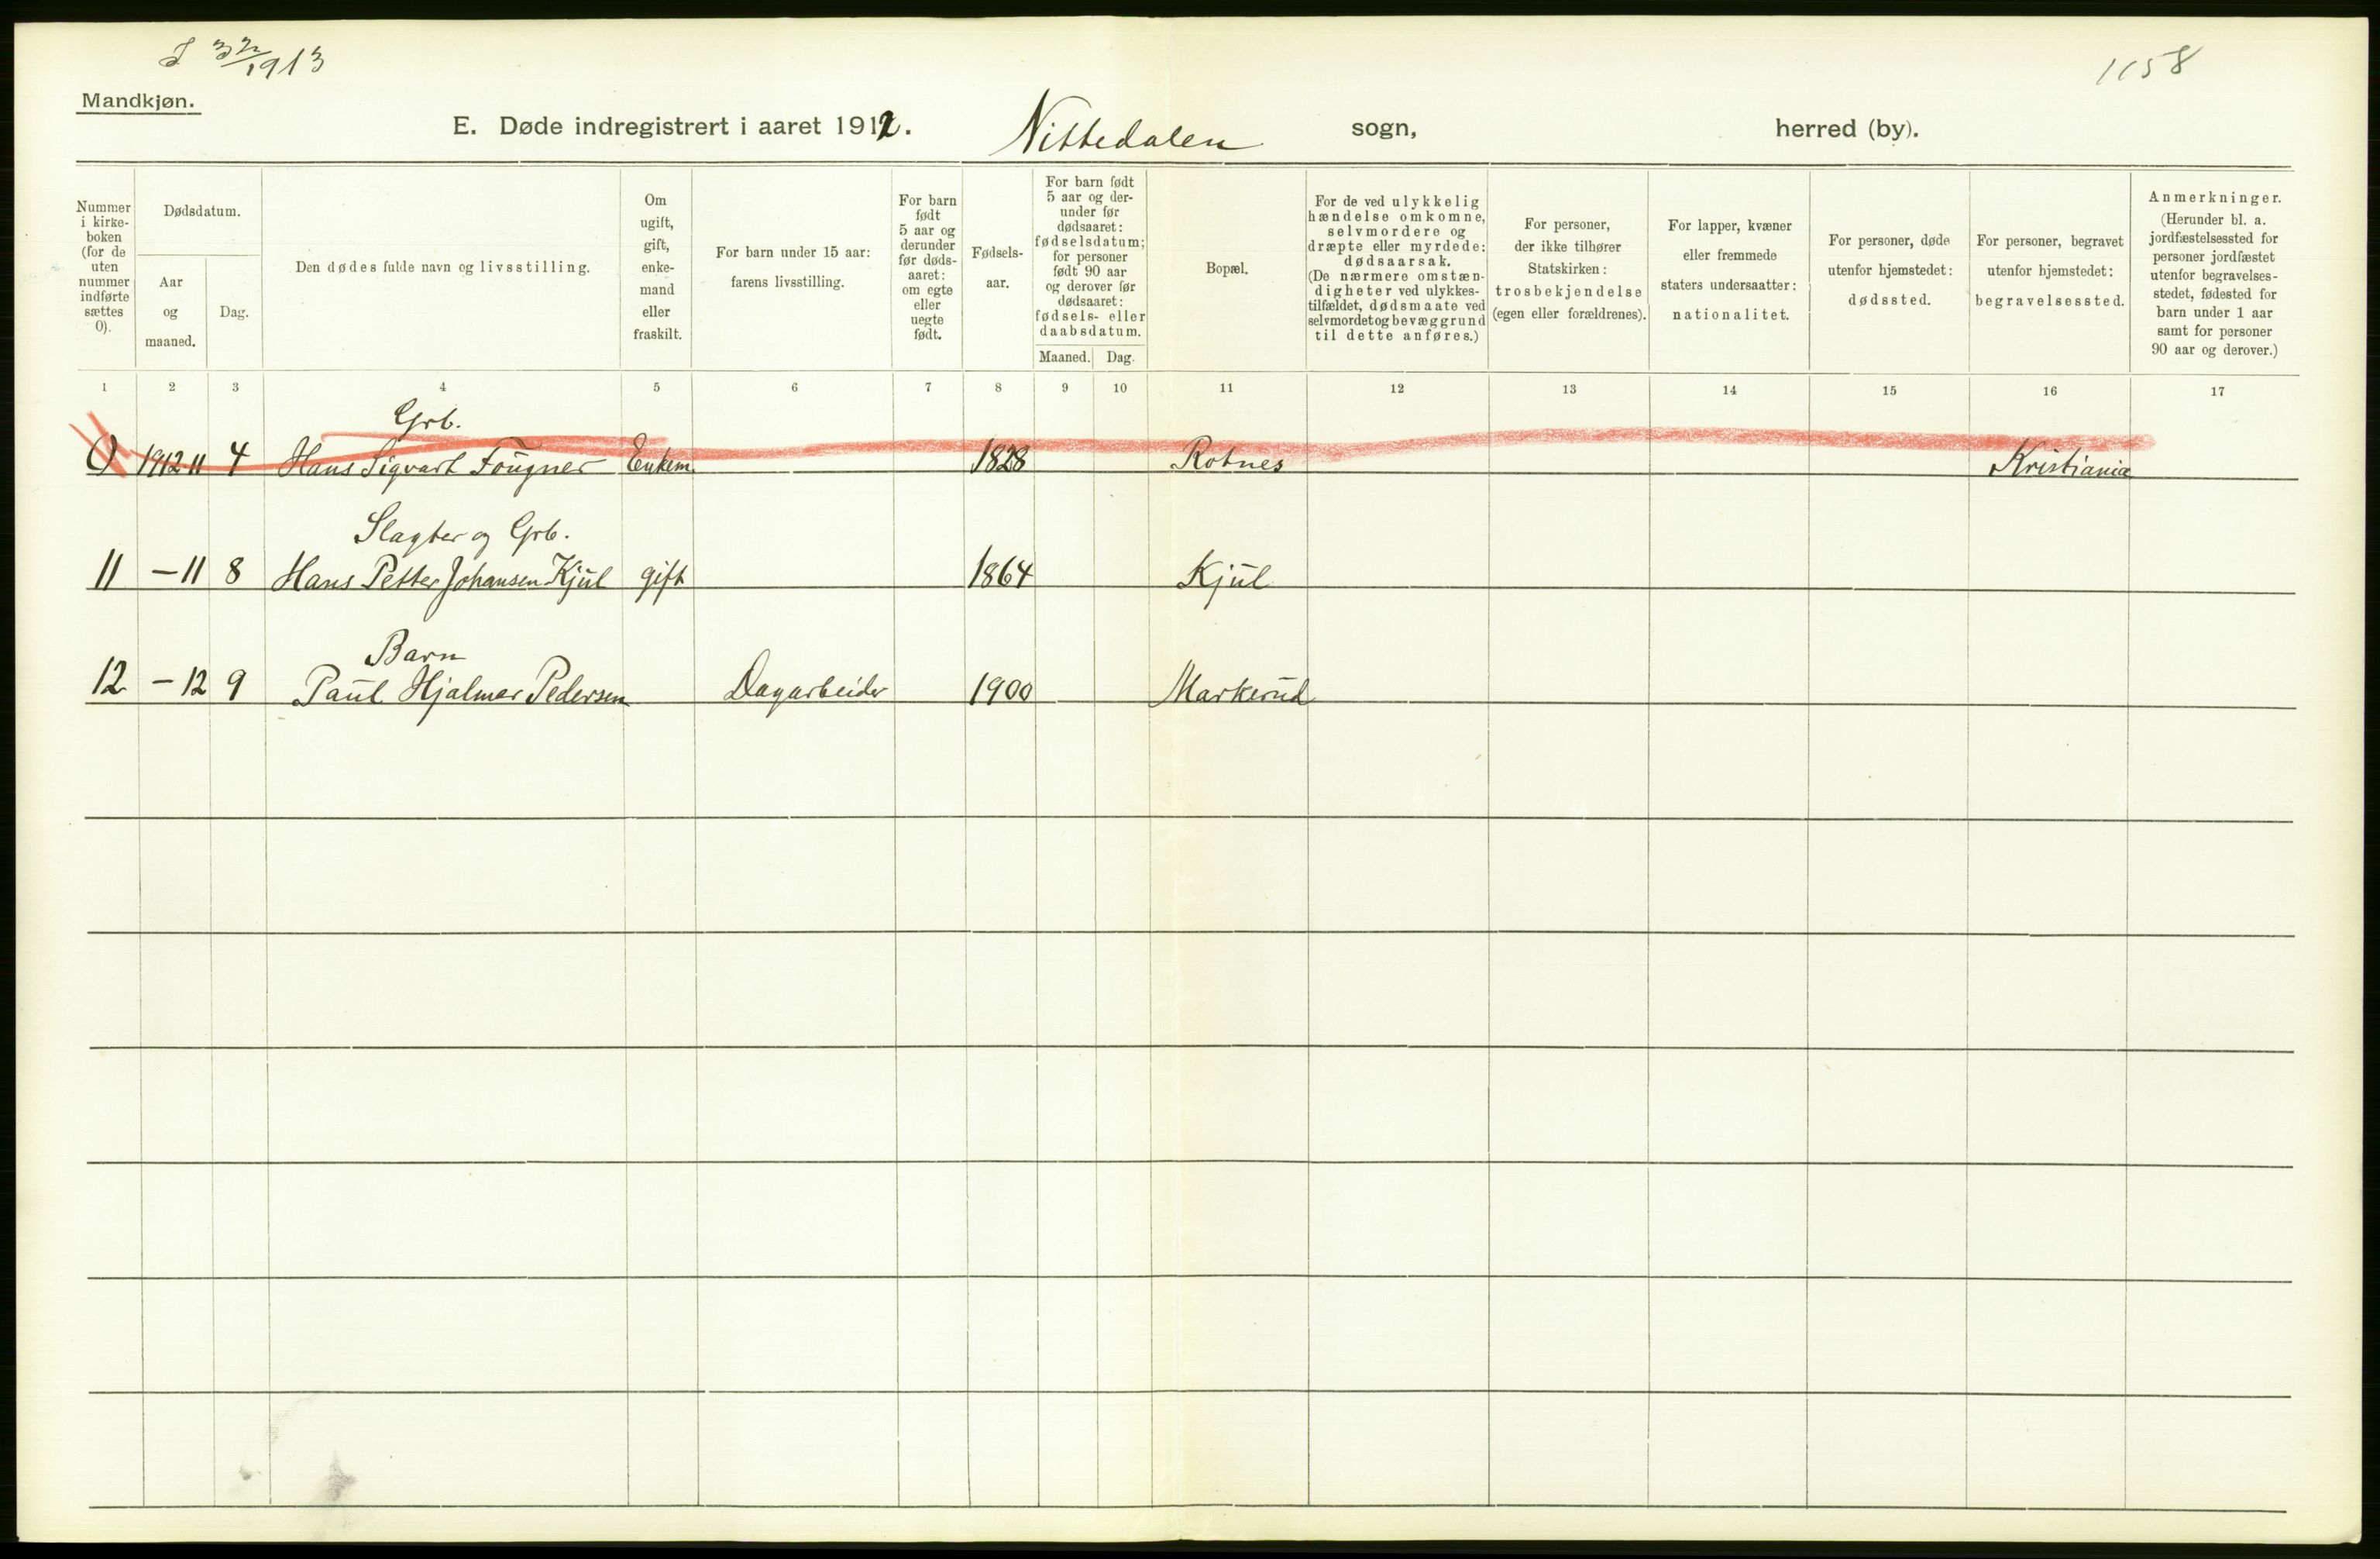 J 32/1913
1158
Mandkjøn.
E. Døde indregistrert i aaret 1912. Nittedalen sogn, herred (by).
Nummer i kirke- boken (for de uten nummer indførte sættes 0).
Dødsdatum.
Aar og maaned.
Dag.
Den dødes fulde navn og livsstilling.
Om ugift, gift, enke- mand eller fraskilt.
For barn under 15 aar: farens livsstilling.
For barn født 5 aar og derunder før døds- aaret: om egte eller uegte født.
Fødsels- aar.
For barn født 5 aar og der- under før dødsaaret: fødselsdatum; for personer født 90 aar og derover før dødsaaret: fødsels- eller daabsdatum.
Maaned. Dag.
Bopæl.
For de ved ulykkelig hændelse omkomne, selvmordere og dræpte eller myrdede: dødsaarsak. (De nærmere omstæn- digheter ved ulykkes- tilfældet, dødsmaate ved selvmordet og bevæggrund til dette anføres.)
For personer, der ikke tilhører Statskirken: trosbekjendelse (egen eller forældrenes).
For lapper, kvæner eller fremmede staters undersaatter: nationalitet.
For personer, døde utenfor hjemstedet: dødssted.
For personer, begravet utenfor hjemstedet: begravelsessted.
Anmerkninger. (Herunder bl. a. jordfæstelsessted for personer jordfæstet utenfor begravelses- stedet, fødested for barn under 1 aar samt for personer 90 aar og derover.)
1 2 3 4 5 6 7 8 9 10 11 12 13 14 15 16 17
Grb.
0 1912 11 4 Hans Sigvart Fougner Enkem 1828 Rotnes Kristiania
Slagter og Grb.
11 – 11 8 Hans Petter Johansen Kjul gift 1864 Kjul
Barn
12 – 12 9 Paul Hjalmar Pedersen Dagarbeider 1900 Markerud